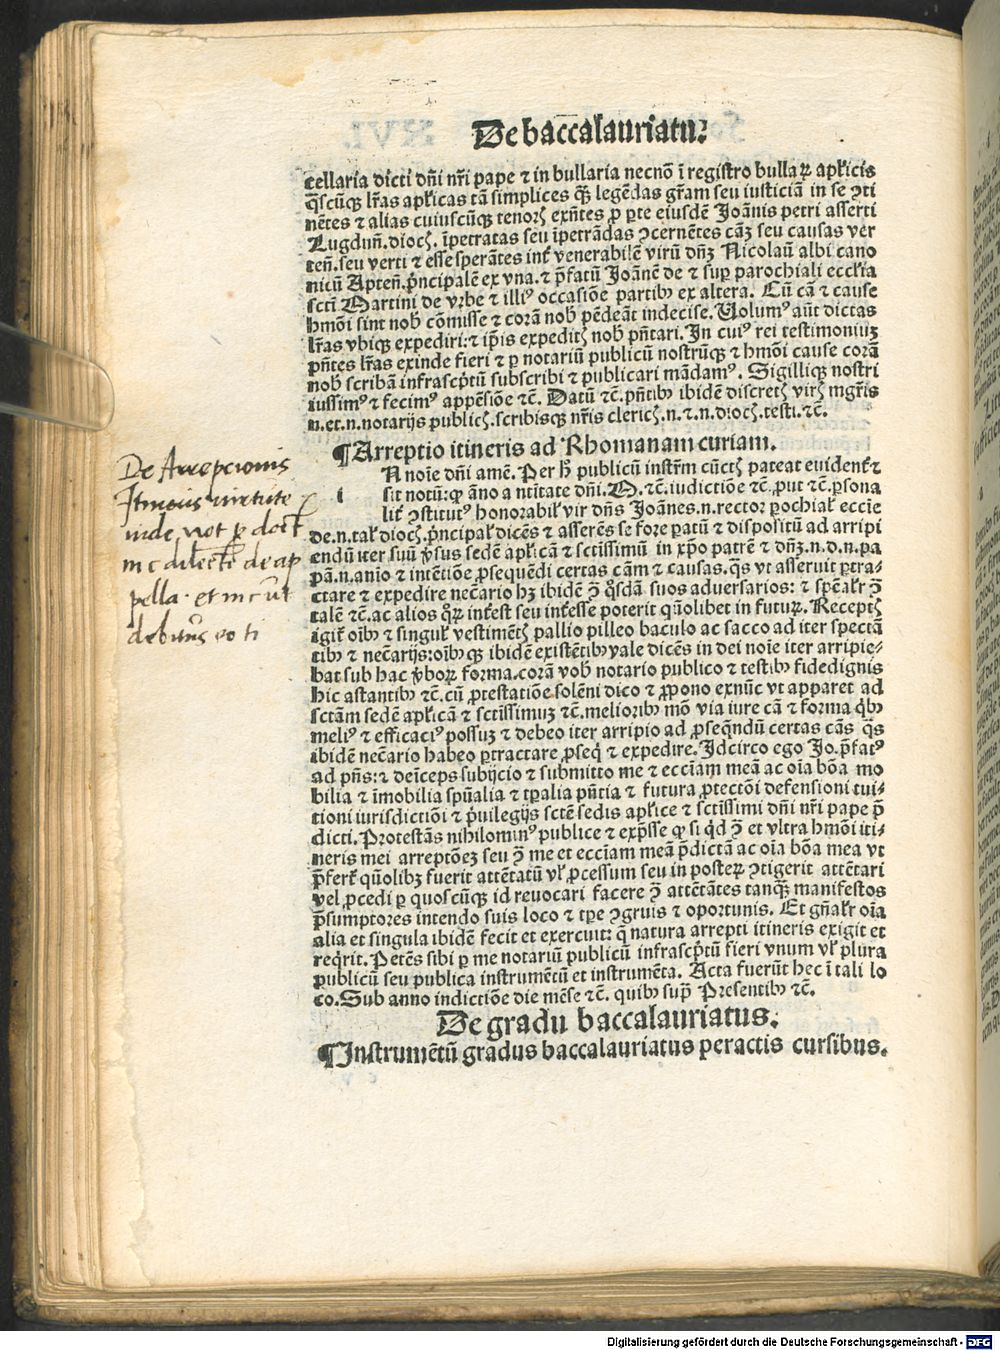 De baccalauriatu?
cellaria dicti dñi nr̃i pape ⁊ in bullaria necnõ ĩ registro bullaꝝ apl̃icis
q̃scũqꝫ lr̃as apl̃icas tã simplices qꝫ̃ legẽdas gr̃am seu iusticiã in se ꝯti
nẽtes ⁊ alias cuiuscũqꝫ tenorꝭ exñtes ꝓ ꝑte eiusdẽ Joãnis petri asserti
Lugduñ. diocꝭ. ĩpetratas seu ĩpetrãdas ꝯcernẽtes cãꝫ seu causas ver
teñ. seu verti ⁊ esse sperãtes int̃ venerabilẽ virũ dñꝫ Nicolaũ albi cano
nicũ Apteñ. p̃ncipalẽ ex vna. ⁊ p̃fatũ Joãnẽ de ⁊ suꝑ parochiali eccl̃ia
sctĩ Martini de vrbe ⁊ illiꝰ occasiõe partibꝫ ex altera. Cũ cã ⁊ cause
hmõi sint nob̃ cõmisse ⁊ corã nob̃ pẽdeãt indecise. Volumꝰ aũt dictas
lr̃as vbiqꝫ expediri: ⁊ ip̃is expeditꝭ nob̃ pñtari. In cuiꝰ rei testimoniuꝫ
pñtes lr̃as exinde fieri ⁊ ꝑ notariũ publicũ nostrũqꝫ ⁊ hmõi cause corã
nob̃ scribã infrascp̃tũ subscribi ⁊ publicari mãdamꝰ. Sigilliqꝫ nostri
iussimꝰ ⁊ fecimꝰ appẽsiõe ⁊c̃. Datũ ⁊c̃. pñtibꝫ ibidẽ discretꝭ virꝭ mgr̃is
n. et. n. notarijs publicꝭ. scribisqꝫ nr̃is clericꝭ. n. ⁊. n. diocꝭ. testi. ⁊c̃.
¶Arreptio itineris ad Rhomanam curiam.
i N noĩe dñi amẽ. Per h̃ publicũ instr̃m cũctꝭ pateat euident̃ ⁊
sit notũ: ꝙ ãno a ntĩtate dñi. M. ⁊c̃. iudictiõe ⁊c̃. ꝓut ⁊c̃. ꝑsona
lit̃ ꝯstitutꝰ honorabil̃ vir dñs Joãnes. n. rector ꝑochial̃ eccĩe
de. n. tal̃ diocꝭ. p̃ncipal̃ dicẽs ⁊ asserẽs se fore ꝑatũ ⁊ dispositũ ad arripi
endũ iter suũ ṽsus sedẽ apl̃icã ⁊ sctĩssimũ in xp̃o patrẽ ⁊ dñꝫ. n. d. n. pa
pã. n. anio ⁊ intẽtiõe ꝓsequẽdi certas cãm ⁊ causas. q̃s vt asseruit ꝑtra-
ctare ⁊ expedire necãrio hꝫ ibidẽ ꝯ̃ q̃sdã suos aduersarios: ⁊ spẽalr̃ ꝯ̃
talẽ ⁊c̃. ac alios qͦꝝ int̃est seu int̃esse poterit qũolibet in futuꝝ. Receptꝭ
igit̃ oĩbꝫ ⁊ singul̃ vestimẽtꝭ pallio pilleo baculo ac sacco ad iter spectã
tibꝫ ⁊ necãrijs: oĩbꝫqꝫ ibidẽ existẽtibꝫ vale dicẽs in dei noĩe iter arripie-
bat sub hac ṽboꝝ forma. corã vob̃ notario publico ⁊ testibꝫ fidedignis
hic astantibꝫ ⁊c̃. cũ ꝓtestatiõe solẽni dico ⁊ ꝓpono exnũc vt apparet ad
sctãm sedẽ apl̃icã ⁊ sctĩssimuꝫ ⁊c̃. melioribꝫ mõ via iure cã ⁊ forma q̃bꝫ
meliꝰ ⁊ efficaciꝰ possuꝫ ⁊ debeo iter arripio ad ꝓseq̃ndũ certas cãs q̃s
ibidẽ necãrio habeo ꝑtractare ꝓseq̃ ⁊ expedire. Idcirco ego Jo. p̃fatꝰ
ad pñs: ⁊ deĩceps subijcio ⁊ submitto me ⁊ eccĩam meã ac oĩa bõa mo
bilia ⁊ ĩmobilia spũalia ⁊ tp̃alia pñtia ⁊ futura ꝓtectõi defensioni tui-
tioni iurisdictiõi ⁊ p̃uilegijs sctẽ sedis apl̃ice ⁊ sctĩssimi dñi nr̃i pape p̃
dicti. Protestãs nihilominꝰ publice ⁊ exp̃sse ꝙ si q̃d ꝯ̃ et vltra hmõi iti-
neris mei arreptõeꝫ seu ꝯ̃ me et eccĩam meã p̃dictã ac oĩa bõa mea vt
p̃fert̃ qũolibꝫ fuerit attẽtatũ vl̃ ꝓcessum seu in posteꝝ ꝯtigerit attẽtari
vel ꝓcedi ꝑ quoscũqꝫ id reuocari facere ꝯ̃ attẽtãtes tanqꝫ̃ manifestos
p̃sumptores intendo suis loco ⁊ tp̃e ꝯgruis ⁊ oportunis. Et gñalr̃ oĩa
alia et singula ibidẽ fecit et exercuit: q̃ natura arrepti itineris exigit et
req̃rit. Petẽs sibi ꝑ me notariũ publicũ infrascp̃tũ fieri vnum vl̃ plura
publicũ seu publica instrumẽtũ et instrumẽta. Acta fuerũt hec ĩ tali lo
co. Sub anno indictiõe die mẽse ⁊c̃. quibꝫ sup̃ Presentibꝫ ⁊c̃.
De gradu baccalauriatus.
¶Instrumẽtũ gradus baccalauriatus peractis cursibus.
De Arrepcionis
Itineris virtute
vide not
de ap
pella. et
debitus
Digitalisierung gefördert durch die Deutsche Forschungsgemeinschaft - DFG